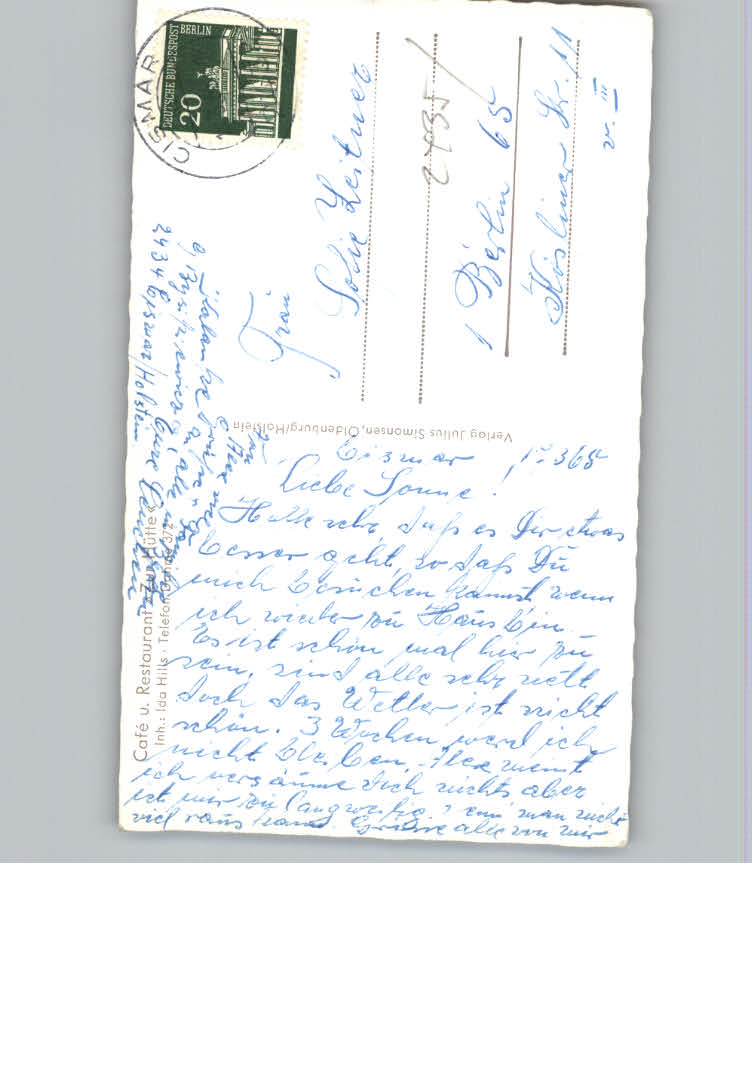 Cismar, 1. 3. 68
Liebe Sonne!
Hoffe sehr, daß es Dir etwas
besser geht, so daß Du
mich besuchen kannst, wenn
ich wieder zu Haus bin.
Es ist schön mal hier zu
sein, sind alle sehr nett
doch das Wetter ist nicht
schön. 3 Wochen werd ich
nicht bleiben. Ilse meint
ich versäume doch nichts aber
ist mir zu langweilig, wenn man nicht
viel raus kann. Grüße alle von mir
2434 Cismar/Holstein
Frau
Sofie Zeitner
2435
1 Berlin 65
Kösliner Str. 11
v. III
DEUTSCHE BUNDESPOST BERLIN
20
CISMAR
Verlag Julius Simonsen, Oldenburg/Holstein
Café u. Restaurant »Zur Hütte«
Inh.: Ida Hills · Telefon 372